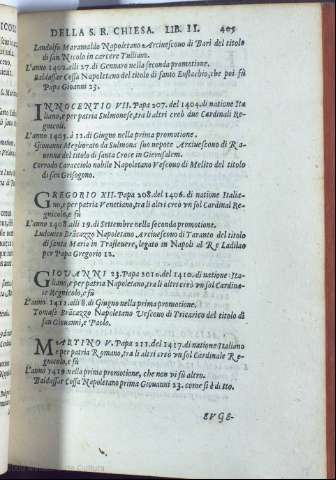 DELLA S. R. CHIESA. LIB. II. 405
Landolfo Maramaldo Napoletano Arciuescouo di Bari del titolo
di san Nicolo in carcere Tulliano.
L'anno 1402. alli 27. di Gennaro nella seconda promotione.
Baldassar Cossa Napoletano del titolo di santo Eustachio, che poi fù
Papa Giouanni 23.
INNOCENTIO VII. Papa 207. del 1404. di natione Ita
liano, e per patria Sulmonese, trà li altri creò due Cardinali Re-
gnicoli.
L'anno 1405. à 12. di Giugno nella prima promotione.
Giouanni Megliorato da Sulmona suo nepote Arciuescouo di Ra
uenna del titolo di santa Croce in Gierusalem.
Corrado Caracciolo nobile Napoletano Vescouo di Melito del titolo
di san Grisogono.
GREGORIO XII. Papa 208. del 1406. di natione Italia
no, e per patria Venetiano, trà li altri creò vn sol Cardinal Re-
gnicolo, e fù
L'anno 1408. alli 19. di Settembre nella seconda promotione.
Ludouico Brācazzo Napoletano Arciuescouo di Taranto del titolo
di santa Maria in Trasteuere, legato in Napoli al Rè Ladislao
per Papa Gregorio 12.
GIOVANNI 23. Papa 2010. del 1410. di natione Ita-
liano, e per patria Napoletano, trà li altri creò vn sol Cardina-
le Regnicolo, e fù
L'anno 1411. alli 8. di Giugno nella prima promotione.
Tomaso Brācazzo Napoletano Vescouo di Tricarico del titolo di
san Giouanni, e Paolo.
MARTINO V. Papa 211. del 1417. di natione Italiano
e per patria Romano, trà li altri creò vn sol Cardinale Re-
gnicolo, e fù
L'anno 1419. nella prima promotione, che non vi fù altro.
Baldassar Cossa Napoletano prima Giouanni 23. come si è ditto.
EVGE-